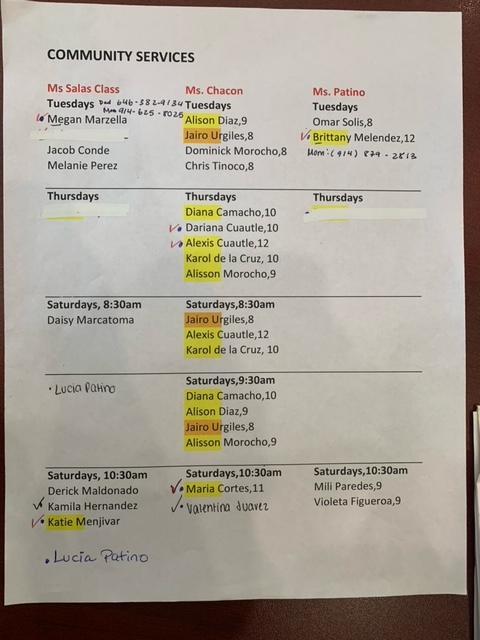 COMMUNITY SERVICES
Ms Salas Class Ms. Chacon Ms. Patino
Tuesdays Dad 646-382-9134 Tuesdays Tuesdays
Mom 914-625-8025
Megan Marzella Alison Diaz,9 Omar Solis,8
Jairo Urgiles,8 Brittany Melendez,12
Jacob Conde Dominick Morocho,8 Mom: (914) 879-2813
Melanie Perez Chris Tinoco,8
Thursdays Thursdays Thursdays
Diana Camacho,10
Dariana Cuautle,10
Alexis Cuautle,12
Karol de la Cruz, 10
Alisson Morocho,9
Saturdays, 8:30am Saturdays,8:30am
Daisy Marcatoma Jairo Urgiles,8
Alexis Cuautle,12
Karol de la Cruz, 10
Saturdays,9:30am
Lucia Patino Diana Camacho,10
Alison Diaz,9
Jairo Urgiles,8
Alisson Morocho,9
Saturdays, 10:30am Saturdays,10:30am Saturdays,10:30am
Derick Maldonado Maria Cortes,11 Mili Paredes,9
Kamila Hernandez Valentina Juarez Violeta Figueroa,9
Katie Menjivar
Lucia Patino